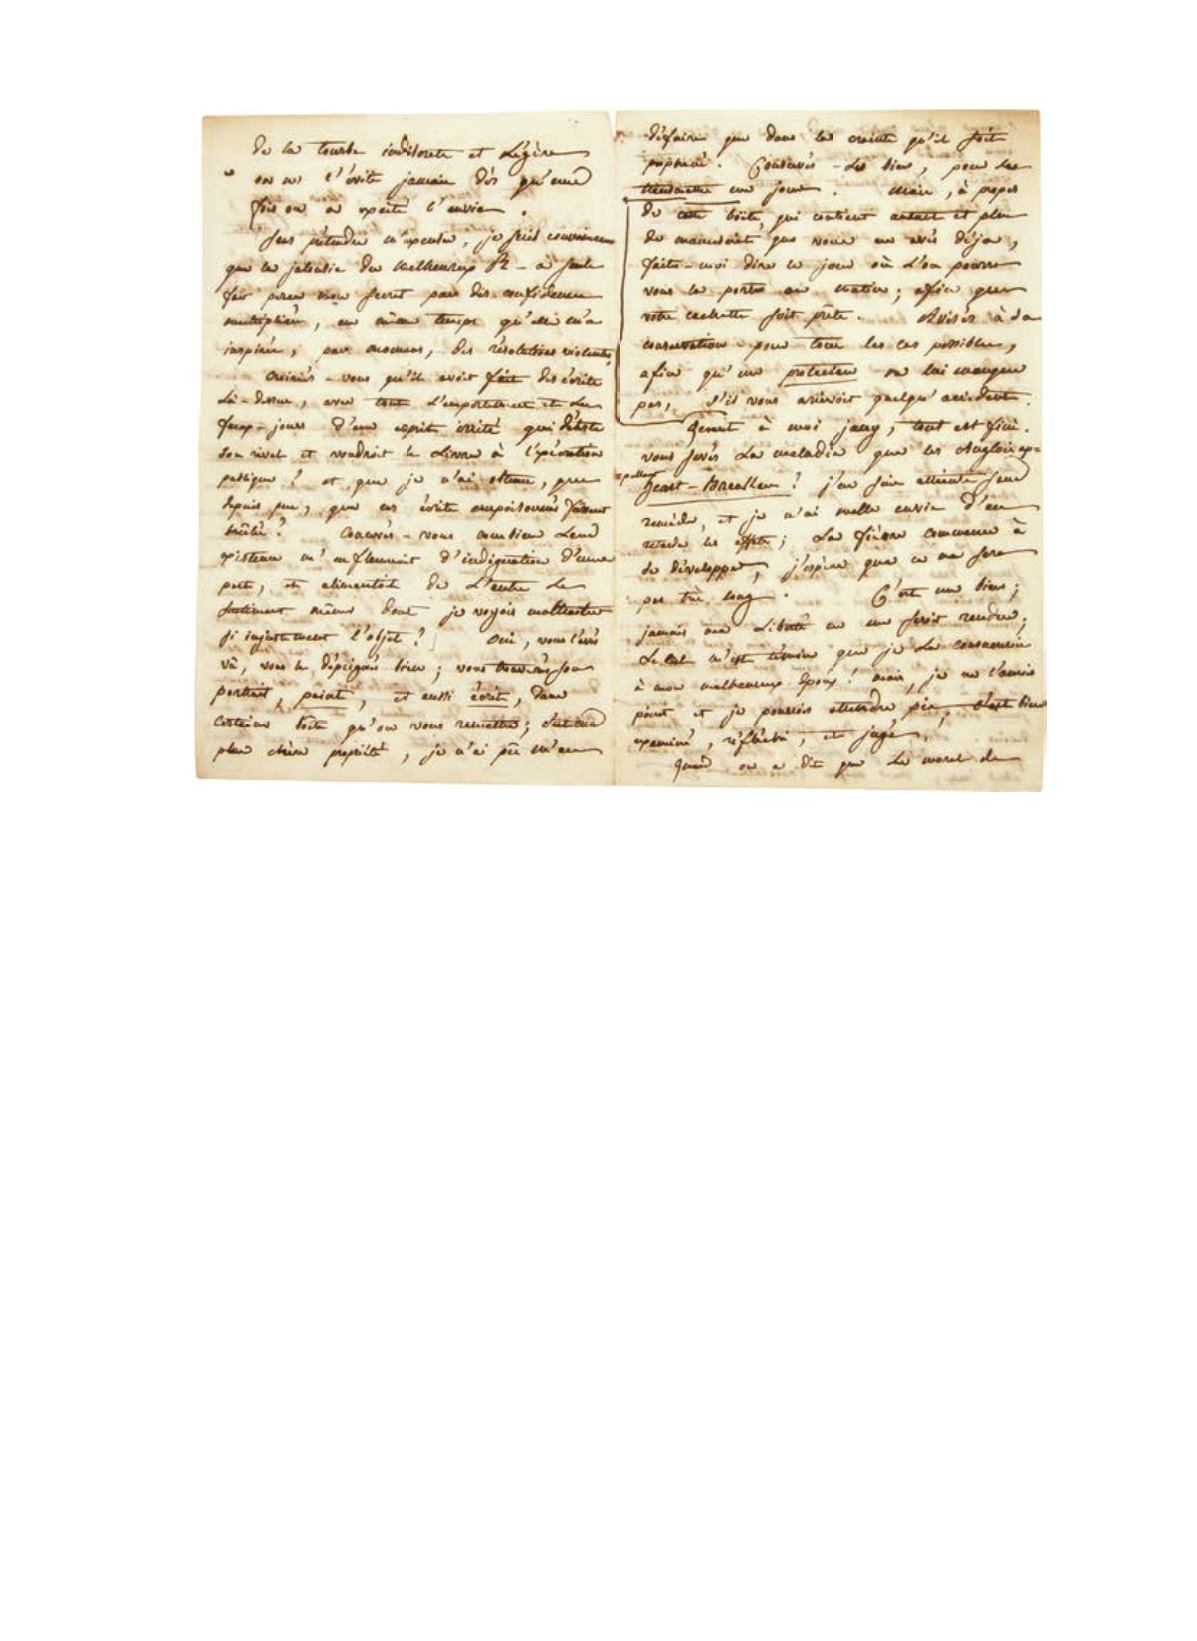 de la tourbe indiscrete et légère
on ne l'évite jamais dès qu'une
fois on a excité l'envie.
Sans prétendre m'excuser, je suis convaincue
que la jalousie du malheureux R - a seule
fait percer mon secret par des confidences
multipliées, en même temps qu'elle m'a
inspirée, par momens, des résolutions violentes.
Croiriés-vous qu'il avoit fait des écrits
là-dessus, avec tout l'emportement et les
faux-jours d'un esprit irrité qui déteste
son rival et voudroit le livrer à l'exécration
publique? et que je n'ai obtenu, que
depuis peu, que ces écrits empoisonnés fussent
brûlés? Concevés-vous combien leur
existence m'enflammoit d'indignation d'une
part, et alimentoit de l'autre le
sentiment même dont je voyois maltraiter
si injustement l'objet? Oui, vous l'avés
vû, vous le dépeignés bien; vous trouverés son
portrait, peint, et aussi écrit, dans
certaine boîte qu'on vous remettra; c'est ma
plus chère propriété, je n'ai pû m'en
défaire que dans la crainte qu'il soit
profané. Conservés-les bien, pour les
transmettre un jour. Mais, à propos
de cette boîte, qui contient autant et plus
de manuscrits que vous en avés déja,
faites-moi dire le jour où l'on pourra
vous la porter au matin; afin que
votre cachette soit prête. Avisés à sa
conservation pour tous les cas possibles,
afin qu'un protecteur ne lui manque
pas, s'il vous arrivoit quelqu'accident.
Quant à moi Jany, tout est fini.
vous savés la maladie que les Anglois
appellent
heart-breaken? j'en suis atteinte sans
remède, et je n'ai nulle envie d'en
retarder les effets; la fièvre commence à
se développer, j'espère que ce ne sera
pas très long. C'est un bien;
jamais ma liberté ne me seroit rendue;
le ciel m'est témoin que je la consacrerois
à mon malheureux époux! mais, je ne l'aurois
point et je pourrois attendre pis; c'est bien
examiné, réfléchi, et jugé.
Quand on a dit que le moral de